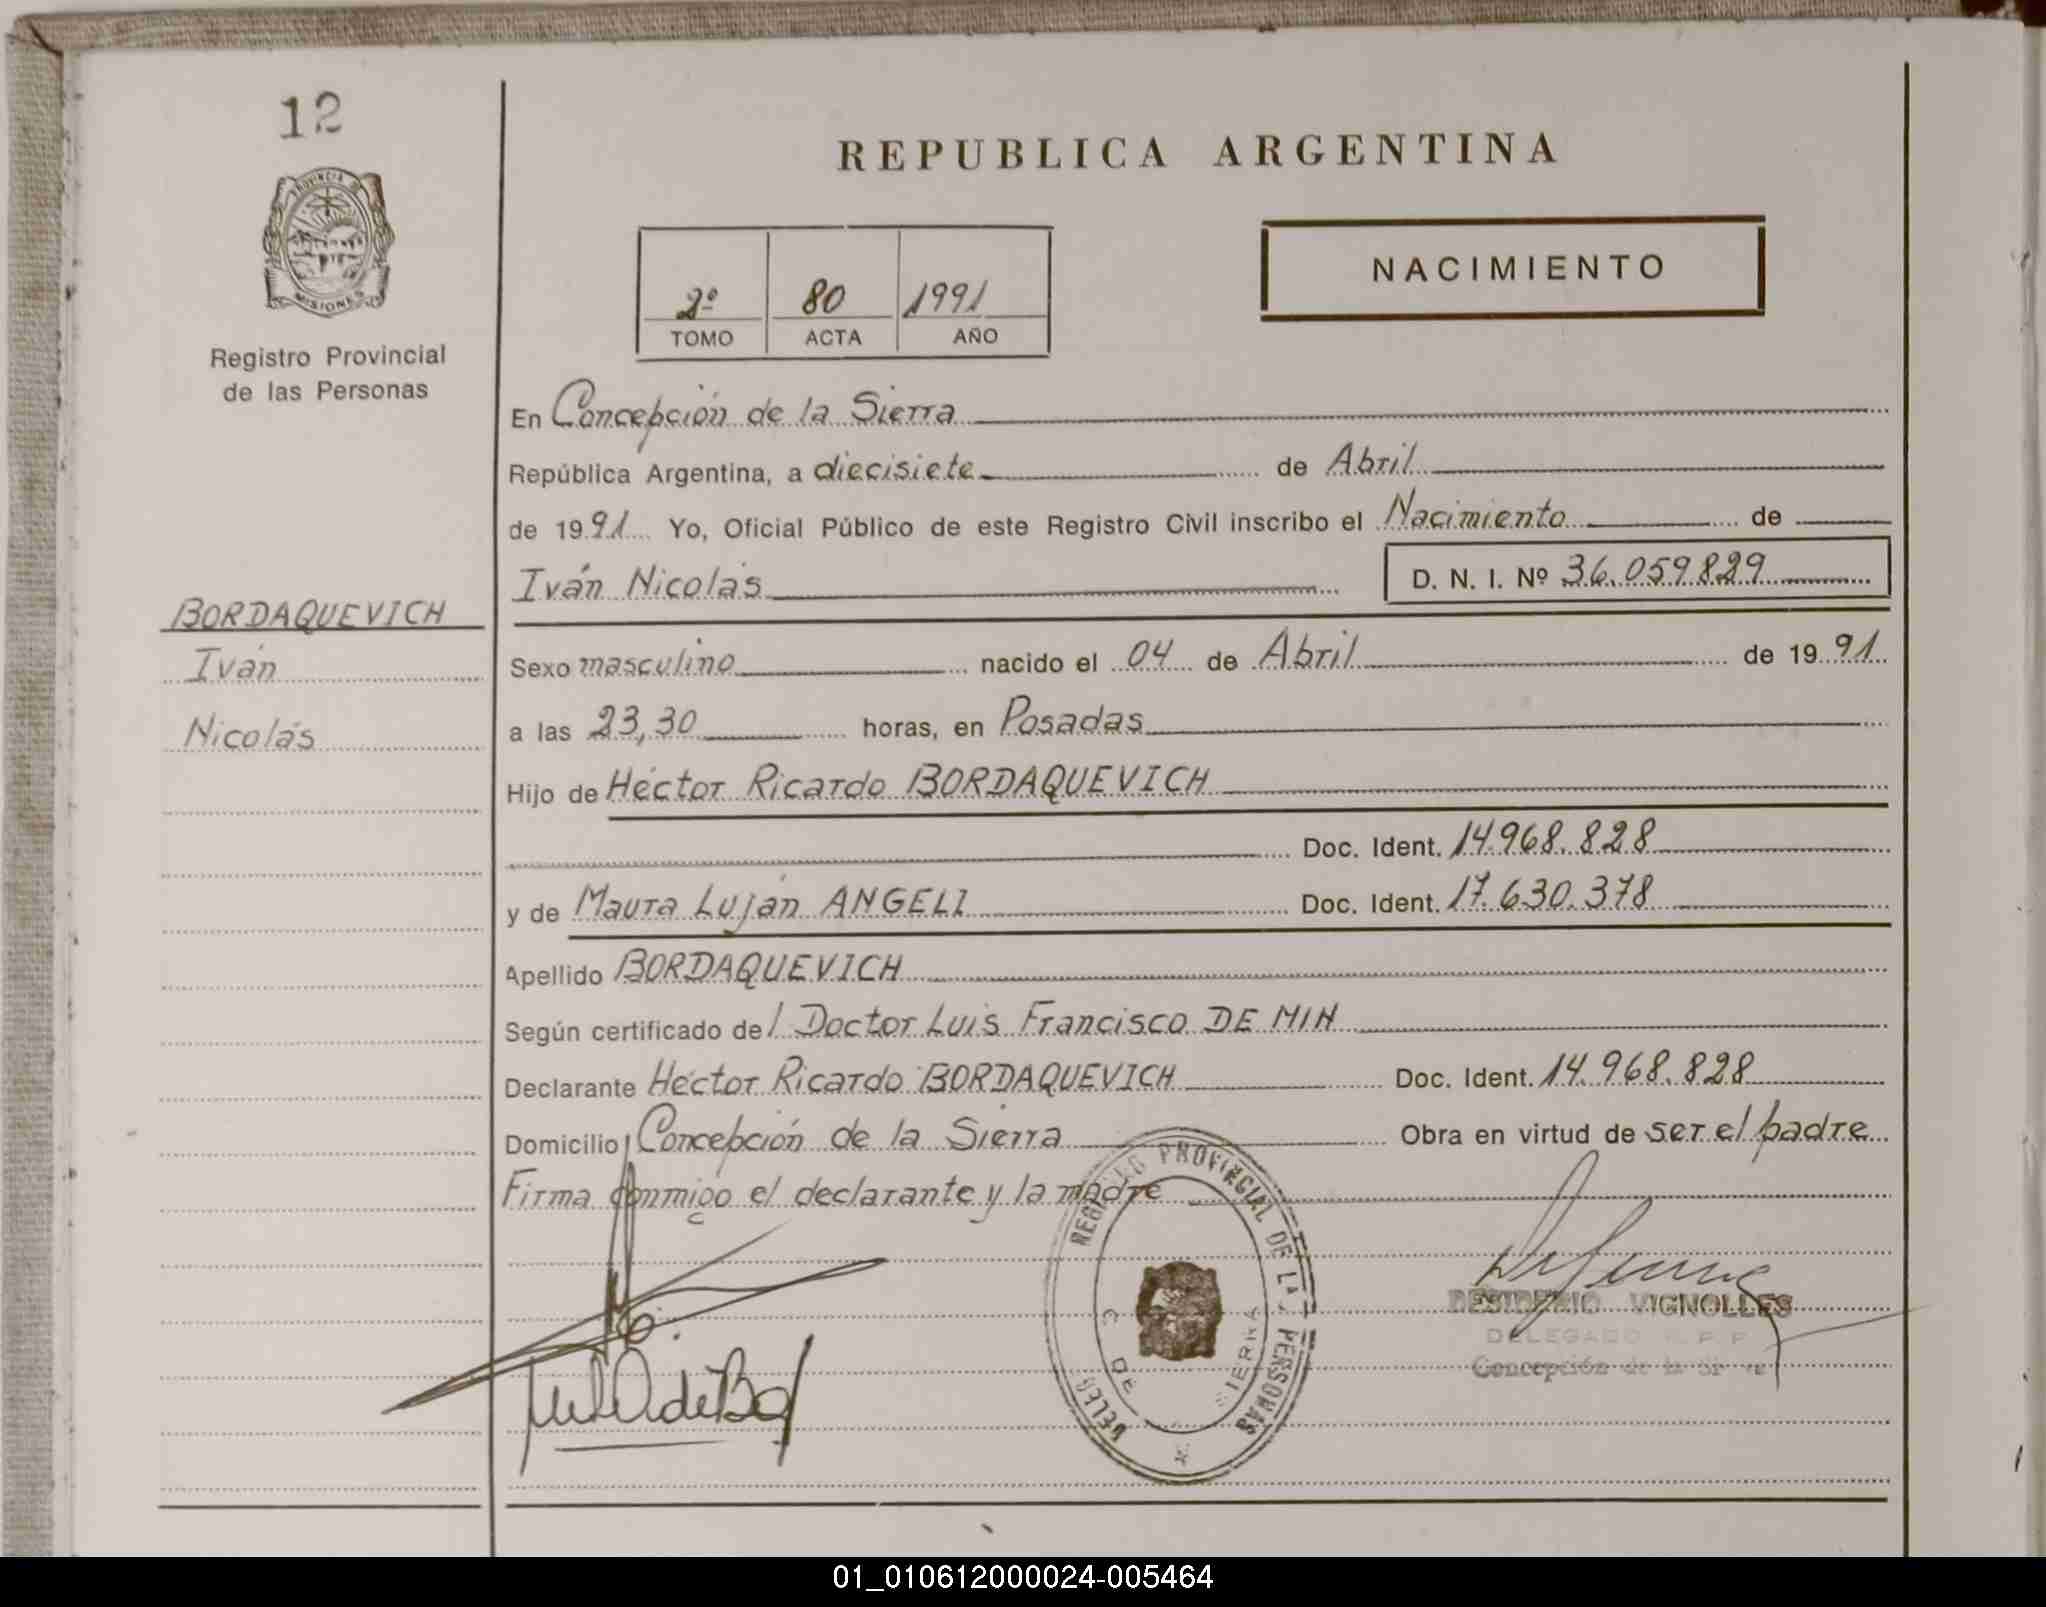 12
REPUBLICA ARGENTINA
PROVINCIA DE
MISIONES
Registro Provincial
de las Personas
2º 80 1991
TOMO ACTA AÑO
NACIMIENTO
En Concepción de la Sierra
República Argentina, a diecisiete de Abril
de 1991 Yo, Oficial Público de este Registro Civil inscribo el Nacimiento de
Iván Nicolás D. N. I. Nº 36.059829
BORDAQUEVICH
Iván
Nicolás
Sexo masculino nacido el 04 de Abril de 1991
a las 23,30 horas, en Posadas
Hijo de Héctor Ricardo BORDAQUEVICH
Doc. Ident. 14.968.828
y de Maura Luján ANGELI Doc. Ident. 17.630.378
Apellido BORDAQUEVICH
Según certificado del Doctor Luis Francisco DE MIN
Declarante Héctor Ricardo BORDAQUEVICH Doc. Ident. 14.968.828
Domicilio Concepción de la Sierra Obra en virtud de ser el padre
Firma conmigo el declarante y la madre
REGISTRO PROVINCIAL DE LAS PERSONAS
C. DE SIERRA
DESIDERIO VIGNOLLES
DELEGADO R. P. P.
Concepción de la Sierra
01_010612000024-005464